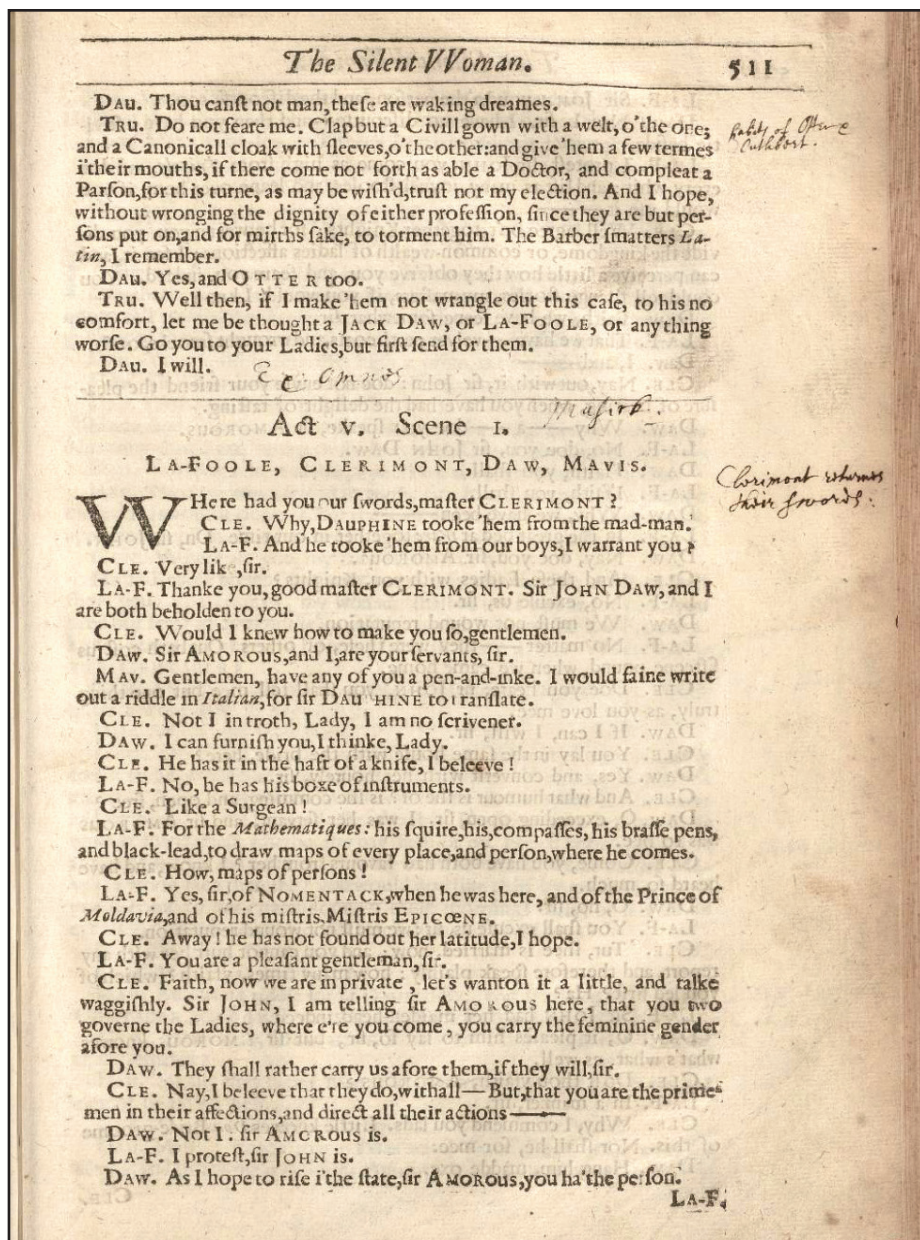 The Silent VVoman. 511
DAU. Thou canſt not man, theſe are waking dreames.
TRU. Do not feare me. Clap but a Civill gown with a welt, o'the one;
and a Canonicall cloak with ſleeves, o'the other: and give 'hem a few termes
i'their mouths, if there come not forth as able a Doctor, and compleat a
Parſon, for this turne, as may be wiſh'd, truſt not my election. And I hope,
without wronging the dignity of either profeſſion, ſince they are but per-
ſons put on, and for mirths ſake, to torment him. The Barber ſmatters La-
tin, I remember.
DAU. Yes, and OTTER too.
TRU. Well then, if I make 'hem not wrangle out this caſe, to his no
comfort, let me be thought a JACK DAW, or LA-FOOLE, or any thing
worſe. Go you to your Ladies, but firſt ſend for them.
DAU. I will. Omnes
Muſick.
Act v. Scene I.
LA-FOOLE, CLERIMONT, DAW, MAVIS.
Clerimont returnes
their ſwords.
WHere had you our ſwords, maſter CLERIMONT?
CLE. Why, DAUPHINE tooke 'hem from the mad-man.
LA-F. And he tooke 'hem from our boys, I warrant you?
CLE. Very lik , ſir.
LA-F. Thanke you, good maſter CLERIMONT. Sir JOHN DAW, and I
are both beholden to you.
CLE. Would I knew how to make you ſo, gentlemen.
DAW. Sir AMOROUS, and I, are your ſervants, ſir.
MAV. Gentlemen, have any of you a pen-and-inke. I would faine write
out a riddle in Italian, for ſir DAU HINE to tranſlate.
CLE. Not I in troth, Lady, I am no ſcrivener.
DAW. I can furniſh you, I thinke, Lady.
CLE. He has it in the haft of a knife, I beleeve!
LA-F. No, he has his boxe of inſtruments.
CLE. Like a Surgean!
LA-F. For the Mathematiques: his ſquire, his, compaſſes, his braſſe pens,
and black-lead, to draw maps of every place, and perſon, where he comes.
CLE. How, maps of perſons!
LA-F. Yes, ſir, of NOMENTACK, when he was here, and of the Prince of
Moldavia, and of his miſtris, Miſtris EPICŒNE.
CLE. Away! he has not found out her latitude, I hope.
LA-F. You are a pleaſant gentleman, ſir.
CLE. Faith, now we are in private, let's wanton it a little, and talke
waggiſhly. Sir JOHN, I am telling ſir AMOROUS here, that you two
governe the Ladies, where e're you come, you carry the feminine gender
afore you.
DAW. They ſhall rather carry us afore them, if they will, ſir.
CLE. Nay, I beleeve that they do, withall— But, that you are the prime
men in their affections, and direct all their actions ——
DAW. Not I. ſir AMOROUS is.
LA-F. I proteſt, ſir JOHN is.
DAW. As I hope to riſe i'the ſtate, ſir AMOROUS, you ha'the perſon.
LA-F.